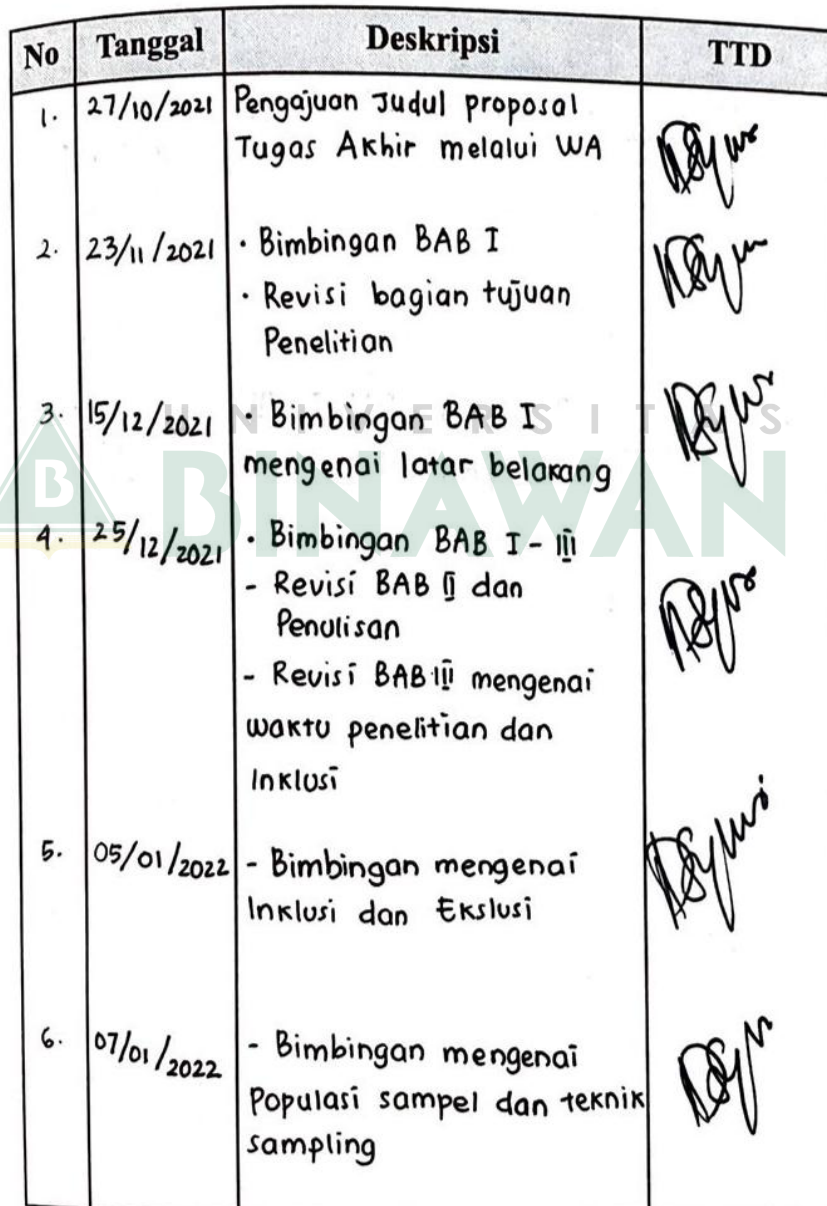 No Tanggal Deskripsi TTD
1. 27/10/2021 Pengajuan Judul proposal
Tugas Akhir melalui WA
2. 23/11/2021 · Bimbingan BAB I
· Revisi bagian tujuan
Penelitian
UNIVERSITAS
3. 15/12/2021 · Bimbingan BAB I
mengenai latar belakang
B BINAWAN
4. 25/12/2021 · Bimbingan BAB I - III
- Revisi BAB II dan
Penulisan
- Revisi BAB III mengenai
waktu penelitian dan
Inklusi
5. 05/01/2022 - Bimbingan mengenai
Inklusi dan Ekslusi
6. 07/01/2022 - Bimbingan mengenai
Populasi sampel dan teknik
sampling